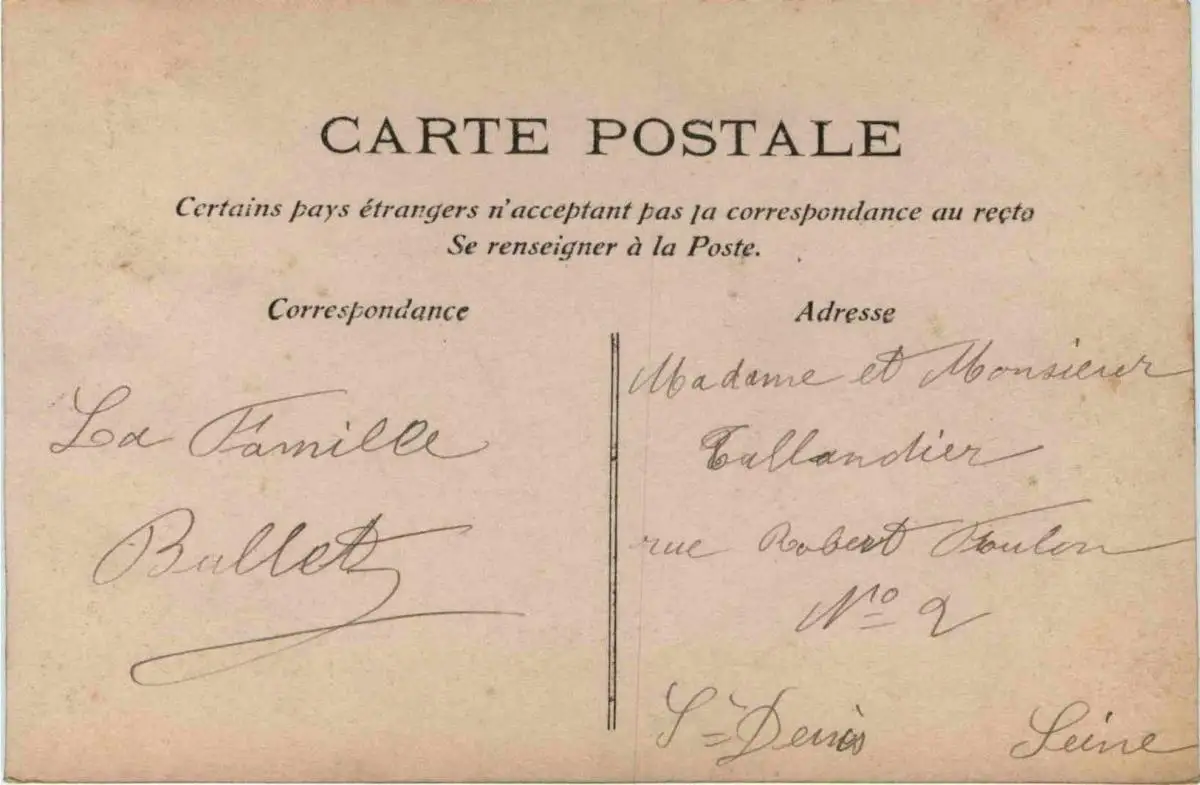 CARTE POSTALE
Certains pays étrangers n'acceptant pas la correspondance au recto
Se renseigner à la Poste.
Correspondance
La Famille
Ballet
Adresse
Madame et Monsieur
Tallandier
rue Robert Foulon
Nº 2
St Denis Seine